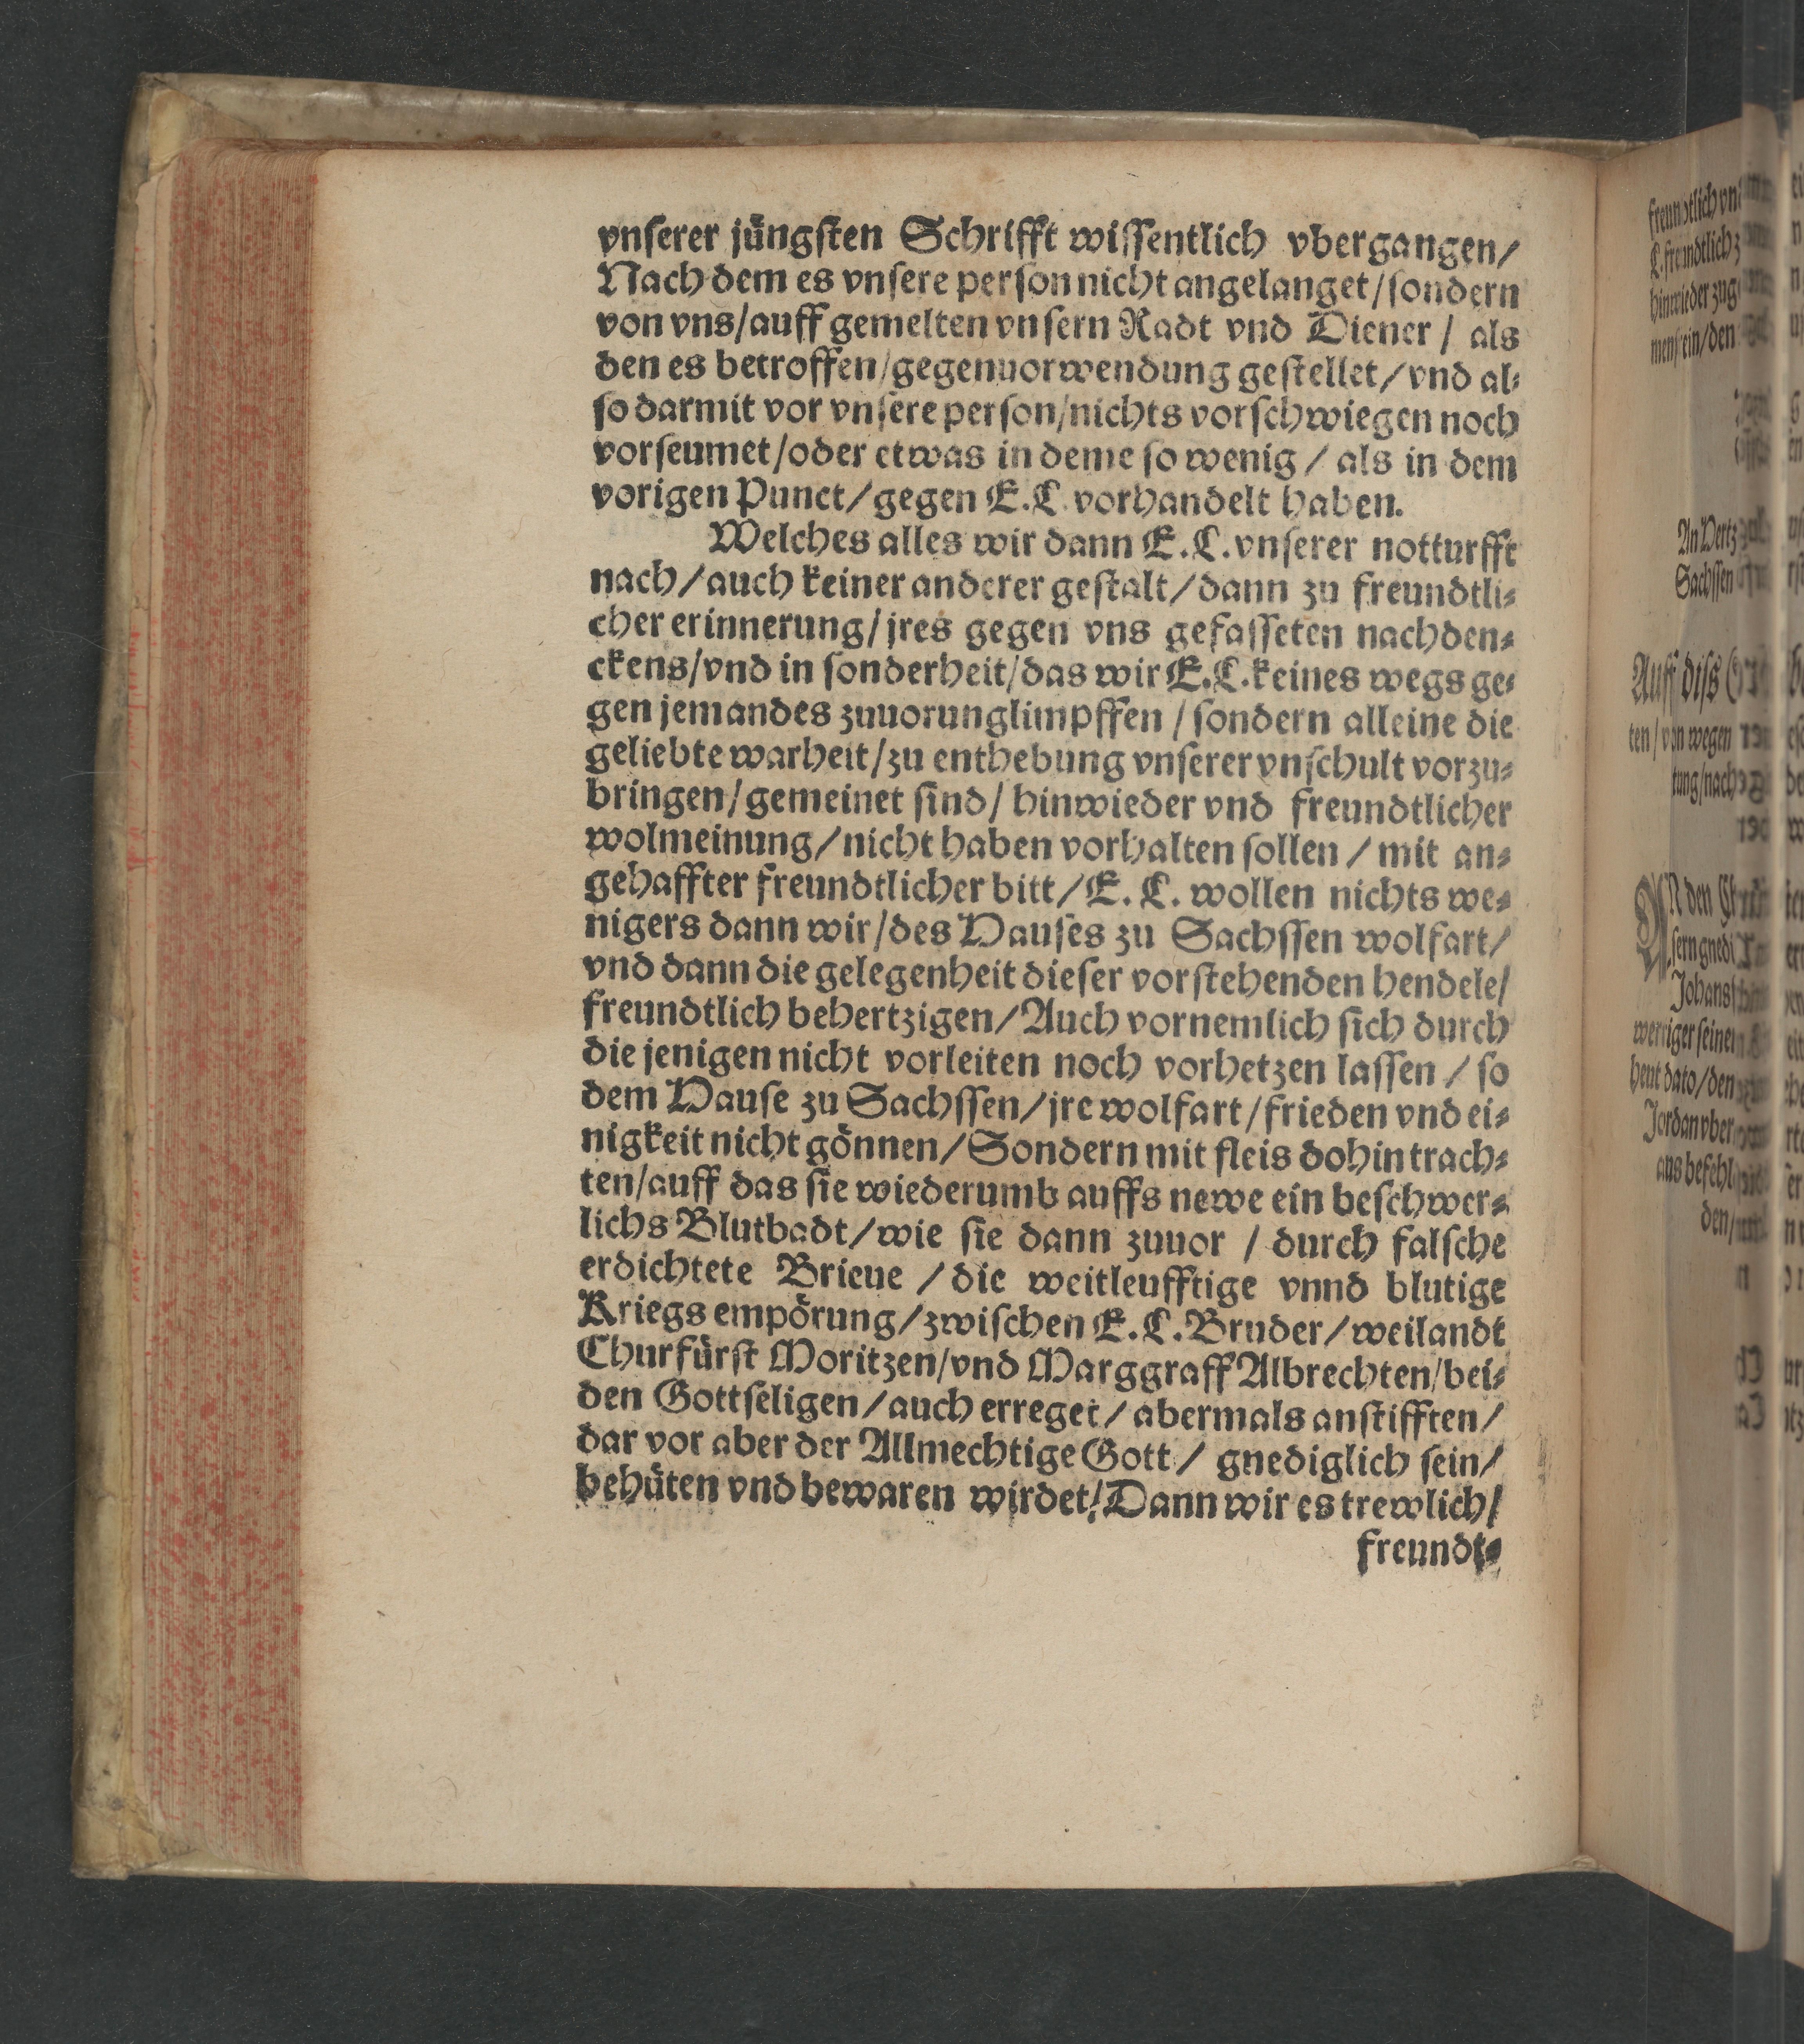 vnserer jüngsten Schrifft wissentlich vbergangen/
Nach dem es vnsere person nicht angelanget/sondern
von vns/auff gemelten vnsern Radt vnd Diener/ als
den es betroffen/gegenuorwendung gestellet/vnd al-
so darmit vor vnsere person/nichts vorschwiegen noch
vorseumet/oder etwas in deme so wenig/ als in dem
vorigen Punct/gegen E.L. vorhandelt haben.
Welches alles wir dann E.L. vnserer notturfft
nach/auch keiner anderer gestalt/dann zu freundtli-
cher erinnerung/jres gegen vns gefasseten nachden-
ckens/vnd in sonderheit/das wir E.L. keines wegs ge-
gen jemandes zuuorunglimpffen/sondern alleine die
geliebte warheit/zu enthebung vnserer vnschult vorzu-
bringen/gemeinet sind/ hinwieder vnd freundtlicher
wolmeinung/nicht haben vorhalten sollen/mit an-
gehaffter freundtlicher bitt/E. L. wollen nichts we-
nigers dann wir/des Hauses zu Sachssen wolfart/
vnd dann die gelegenheit dieser vorstehenden hendele/
freundtlich behertzigen/Auch vornemlich sich durch
die jenigen nicht vorleiten noch vorhetzen lassen/so
dem Hause zu Sachssen/jre wolfart/frieden vnd ei-
nigkeit nicht gönnen/Sondern mit fleis dohin trach-
ten/auff das sie wiederumb auffs newe ein beschwer-
lichs Blutbadt/wie sie dann zuuor/durch falsche
erdichtete Brieue/die weitleufftige vnnd blutige
Kriegs empörung/zwischen E.L. Bruder/weilandt
Churfürst Moritzen/vnd Marggraff Albrechten/bei-
den Gottseligen/auch erreget/abermals anstifften/
dar vor aber der Allmechtige Gott/ gnediglich sein/
behüten vnd bewaren wirdet/Dann wir es trewlich/
freundt-